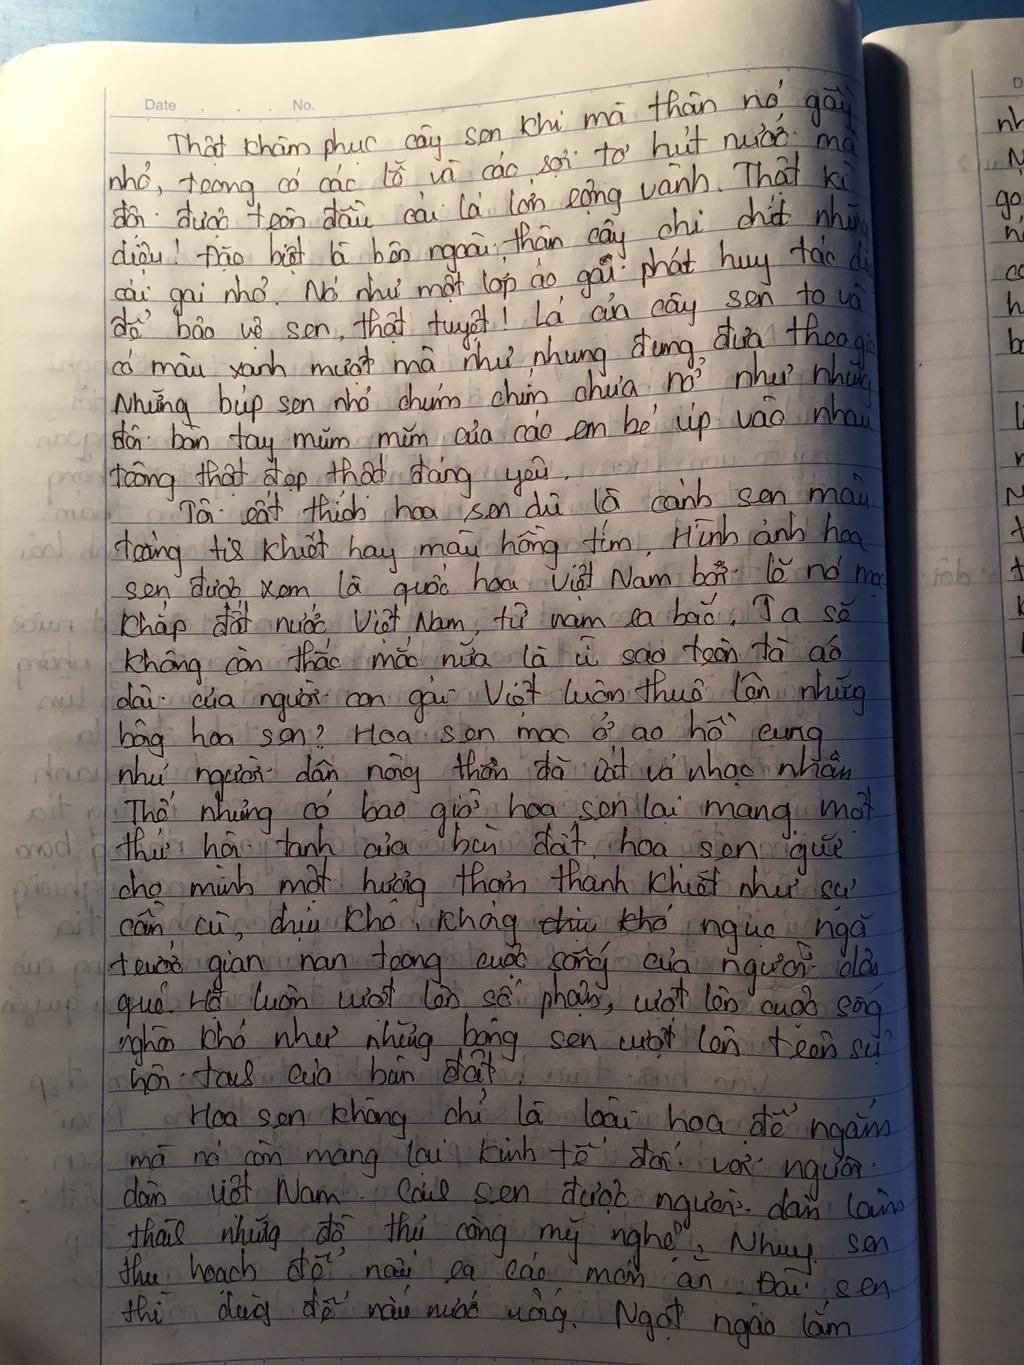 Date . . . No.
Thật khâm phục cây sen khi mà thân nó gầy
nhỏ, trong có các lỗ và các sợi tơ hút nước mà
đội được trên đầu cái lá lớn rộng vành. Thật kì
diệu! Đặc biệt là bên ngoài thân cây chi chít những
cái gai nhỏ. Nó như một lớp áo gai phát huy tác
để bảo vệ sen, thật tuyệt! Lá của cây sen to và
có màu xanh mướt mà như nhung đung đưa theo gió
Những búp sen nhỏ chúm chím chưa nở như những
đôi bàn tay mũm mĩm của các em bé úp vào nhau
trông thật đẹp thật đáng yêu.
Tôi rất thích hoa sen dù là cánh sen màu
trắng tinh khiết hay màu hồng tím. Hình ảnh hoa
sen được xem là quốc hoa Việt Nam bởi lẽ nó mọc
khắp đất nước Việt Nam, từ nam ra bắc. Ta sẽ
không còn thắc mắc nữa là vì sao trên tà áo
dài của người con gái Việt luôn thuê lên những
bông hoa sen? Hoa sen mọc ở ao hồ cung
như người dân nông thôn đã vất vả nhọc nhằn
Thế nhưng có bao giờ hoa sen lại mang một
thứ hôi tanh của bùn đất, hoa sen giữ
cho mình một hương thơm thanh khiết như sự
cần cù, chịu khó, không chịu khó ngục ngã
trước gian nan trong cuộc sống của người dân
quê. Họ luôn vượt lên số phận, vượt lên cuộc sống
nghèo khó như những bông sen vượt lên trên sự
hôi tanh của bùn đất.
Hoa sen không chỉ là loài hoa để ngắm
mà nó còn mang lại kinh tế đối với người
dân Việt Nam. Cánh sen được người dân làm
thành những đồ thủ công mỹ nghệ, Nhụy sen
thu hoạch để nấu ra các món ăn. Đài sen
thì dùng để nấu nước uống. Ngọt ngào lắm